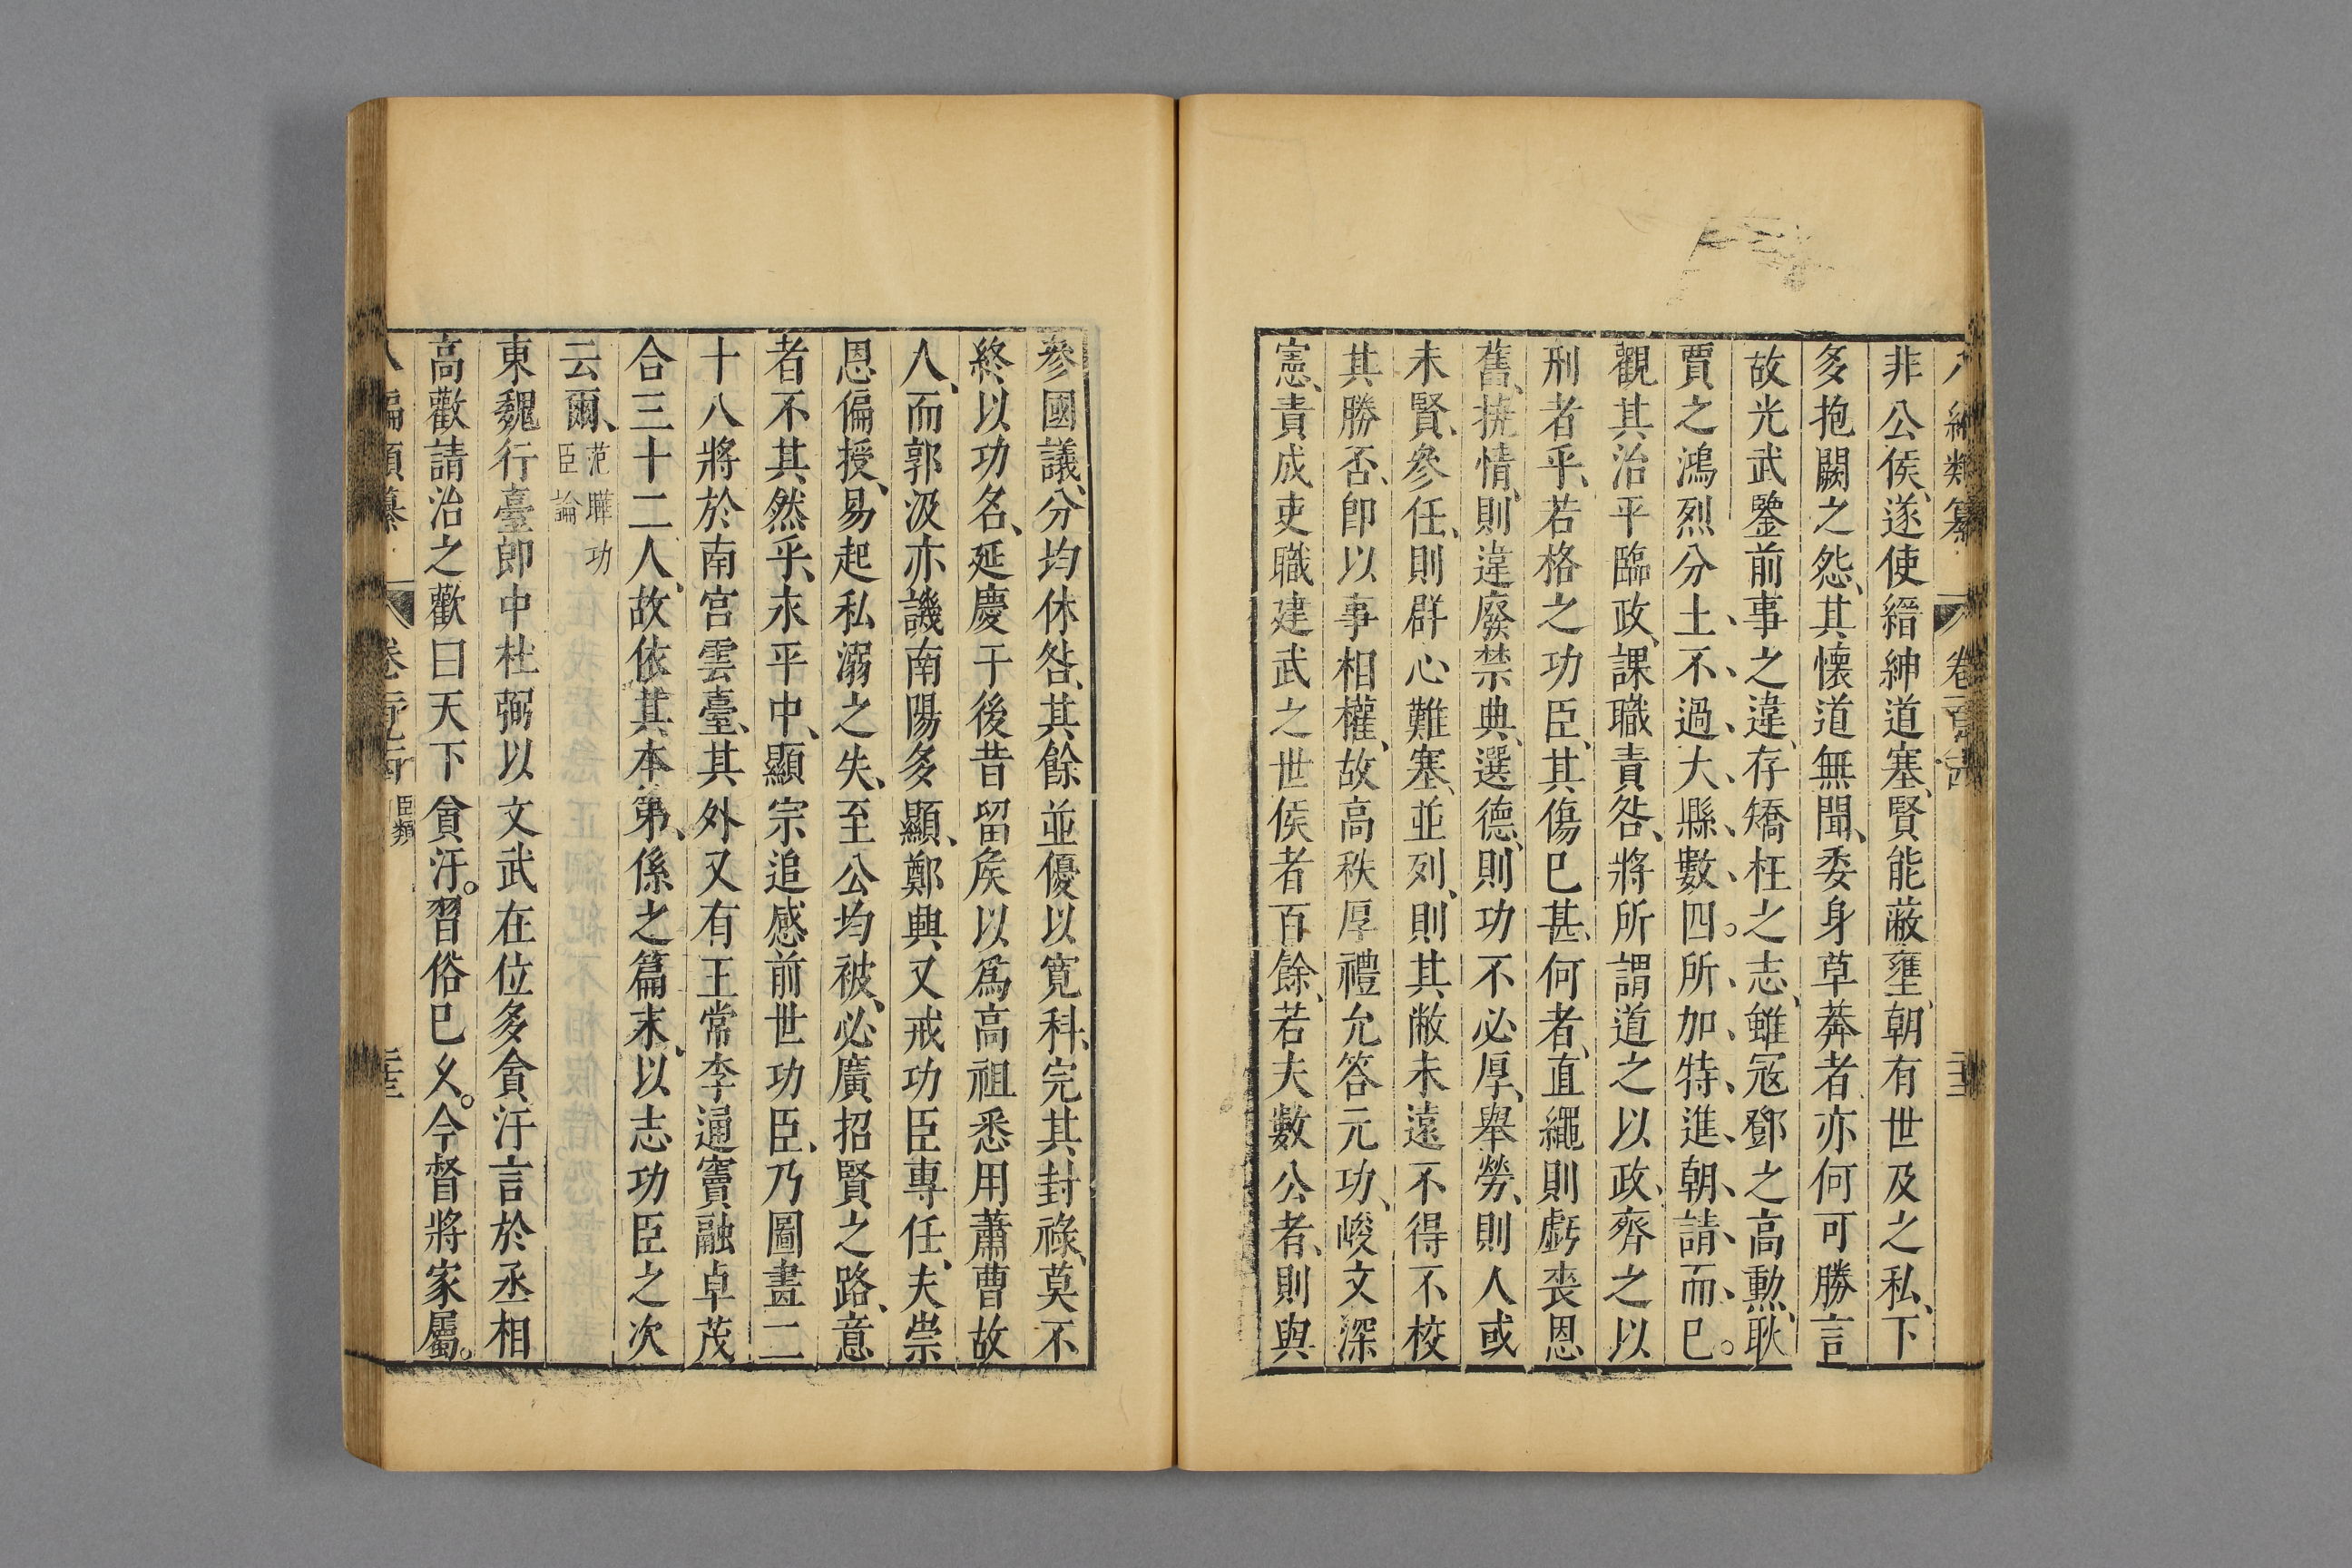 非公侯、遂使縉紳道塞、賢能蔽壅、朝有世及之私、下
多抱關之怨、其懷道無聞、委身草莽者亦何可勝言
故光武鑒前事之違、存矯枉之志、雖寇鄧之高勲、耿
賈之鴻烈分土、不、過、大、縣、數、四。所、加、特、進、朝、請、而、已。
觀其治平臨政、課職責咎、將所謂道之以政、齊之以
刑者乎、若格之功臣、其傷已甚、何者、直繩則虧喪恩
舊、撓情、則違廢禁典、選德、則功不必厚、舉勞、則人或
未賢、參任、則群心難塞、並列、則其敝未遠不得不校
其勝否、即以事相權、故高秩厚禮允答元功、峻文深
憲、責成吏職建武之世侯者百餘、若夫數公者、則與
參國議、分均休咎、其餘並優以寬科、完其封祿、莫不
終以功名、延慶于後昔留矦以為高祖悉用蕭曹故
人、而郭汲亦譏南陽多顯、鄭興又戒功臣專任、夫崇
恩偏授、易起私溺之失、至公均被、必廣招賢之路、意
者不其然乎、永平中、顯宗追感前世功臣、乃圖畫二
十八將於南宮雲臺、其外又有王常李通竇融卓茂
合三十二人、故依其本第、係之篇末、以志功臣之次
云爾、范曄功臣論
東魏行臺郎中杜弼以文武在位多貪汙言於丞相
高歡請治之歡曰天下貪汙。習俗已久。今督將家屬。